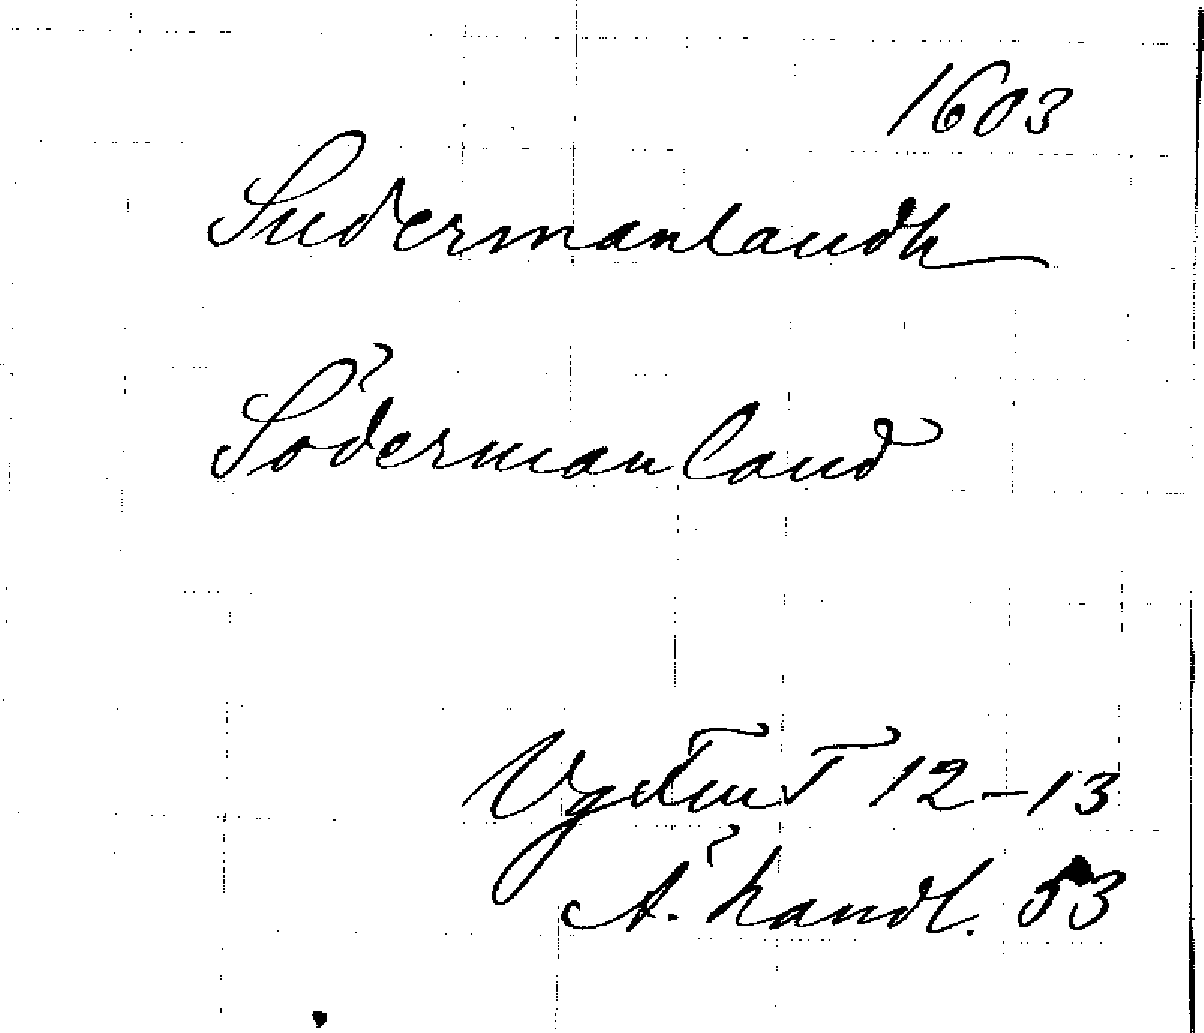 1603
Sudermanlandh
Södermanland
T 12-13
handl. 53